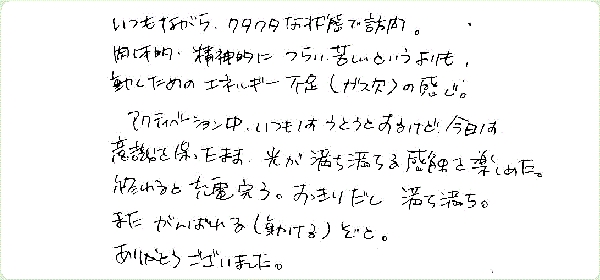 いつもながら、クタクタな状態で訪問。
肉体的・精神的に つらい苦しいというよりも、
動くためのエネルギー不足（ガス欠）の感じ。
アクティベーション中、いつもはうとうとするけど、今日は
意識を保ったまま、光が満ち満ちる感触を楽しめた。
終わると充電完了。すっきりだし 満ち満ち。
また がんばれる（動ける）ぞと。
ありがとうございました。